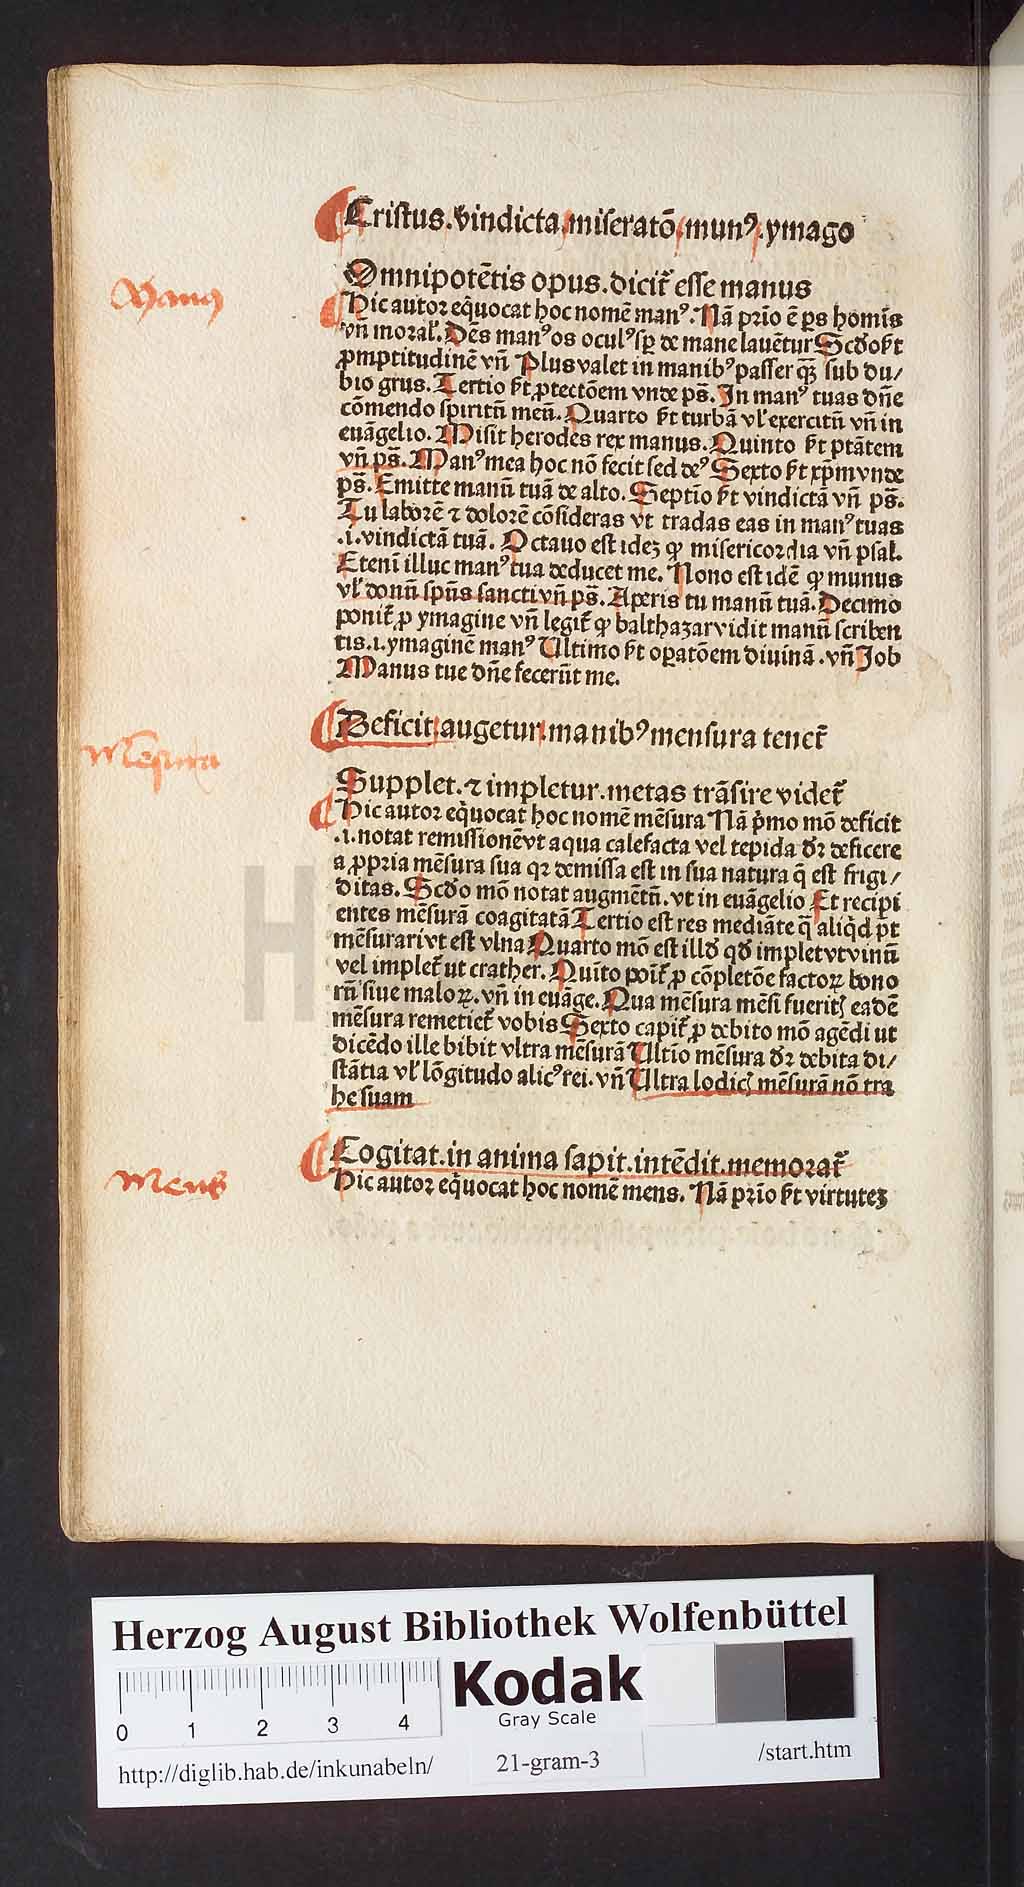 Cristus.vindicta.miseratō.munꝰ.ymago
Omnipotētis opus.dicit᷑ esse manus
Manꝰ
Hic autor eq̇uocat hoc nomē manꝰ.Nā prīo ē ꝑs homīs
vn̄ moral̓.Dēs manꝰ os oculꝰ sꝑ de mane lauētur Scd̓o ħt
ꝓmptitudinē vn̄ Plus valet in manibꝰ passer q̄ꝫ sub du/
bio grus.Tertio ħt ꝓtectōem vnde ps̄.In manꝰ tuas dn̄e
cōmendo spiritū meū.Quarto ħt turbā vl̓ exercitū vn̄ in
euāgelio.Misit herodes rex manus.Quinto ħt ptātem
vn̄ ps̄.Manꝰ mea hoc nō fecit sed deꝰ Sexto ħt xp̄m vnde
ps̄.Emitte manū tuā de alto.Septīo ħt vindictā vn̄ ps̄.
Tu laborē ⁊ dolorē cōsideras vt tradas eas in manꝰ tuas
.i.vindictā tuā.Octauo est ideꝫ ꝙ misericordia vn̄ psal̓.
Etenī illuc manꝰ tua deducet me.Nono est idē ꝙ munus
vl̓ donū sp̄ūs sancti vn̄ ps̄.Aperis tu manū tuā.Decimo
ponit᷑ ꝓ ymagine vn̄ legit᷑ ꝙ balthazar vidit manū scriben
tis.i.ymaginē manꝰ Ultimo ħt oꝑatōem diuinā.vn̄ Job
Manus tue dn̄e fecerūt me.
Deficit.augetur.manibꝰ mensura tenet᷑
Mēsura
Supplet.⁊ impletur.metas trāsire videt᷑
Hic autor eq̇uocat hoc nomē mēsura Nā p̄mo mō deficit
.i.notat remissionē vt aqua calefacta vel tepida d̓r deficere
a ꝓpria mēsura sua qr demissa est in sua natura q̄ est frigi/
ditas.Scd̓o mō notat augmētū.vt in euāgelio Et recipi
entes mēsurā coagitatā Tertio est res mediāte q̄ aliq̇d pt
mēsurari vt est vlna Quarto mō est illd̓ qd̓ implet vt vinū
vel implet᷑ ut crather.Quīto poīt᷑ ꝓ cōpletōe factoꝝ bono
rū siue maloꝝ.vn̄ in euāge.Qua mēsura mēsi fueritꝭ eadē
mēsura remetiet᷑ vobis Sexto capit᷑ ꝓ debito mō agēdi ut
dicēdo ille bibit vltra mēsurā Ultīo mēsura d̓r debita di/
stātia vl̓ lōgitudo alicꝰ rei.vn̄ Ultra lodicꝭ mēsurā nō tra
he suam
Cogitat.in anima sapit.intēdit.memorat᷑
Mens
Hic autor eq̇uocat hoc nomē mens.Nā prīo ħt virtuteꝫ
Herzog August Bibliothek Wolfenbüttel
0 1 2 3 4
Kodak
Gray Scale
http://diglib.hab.de/inkunabeln/
21-gram-3
/start.htm